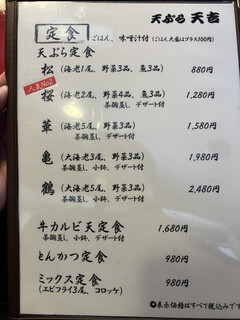 天ぷら 天吉
定食 ごはん、味噌汁付 (ごはん大盛はプラス100円)
天ぷら定食
松 (海老1尾、野菜3品、魚3品) 880円
人気No2
桜 (海老2尾、野菜4品、魚3品) 1,280円
茶碗蒸し、デザート付
華 (海老5尾、野菜3品) 1,580円
茶碗蒸し、デザート付
亀 (大海老3尾、野菜3品) 1,980円
茶碗蒸し、小鉢、デザート付
鶴 (大海老5尾、野菜3品) 2,480円
茶碗蒸し、小鉢、デザート付
牛カルビ天定食 1,680円
茶碗蒸し、小鉢、デザート付
とんかつ定食 980円
ミックス定食 980円
(エビフライ3尾、コロッケ)
◎表示価格はすべて税込みです